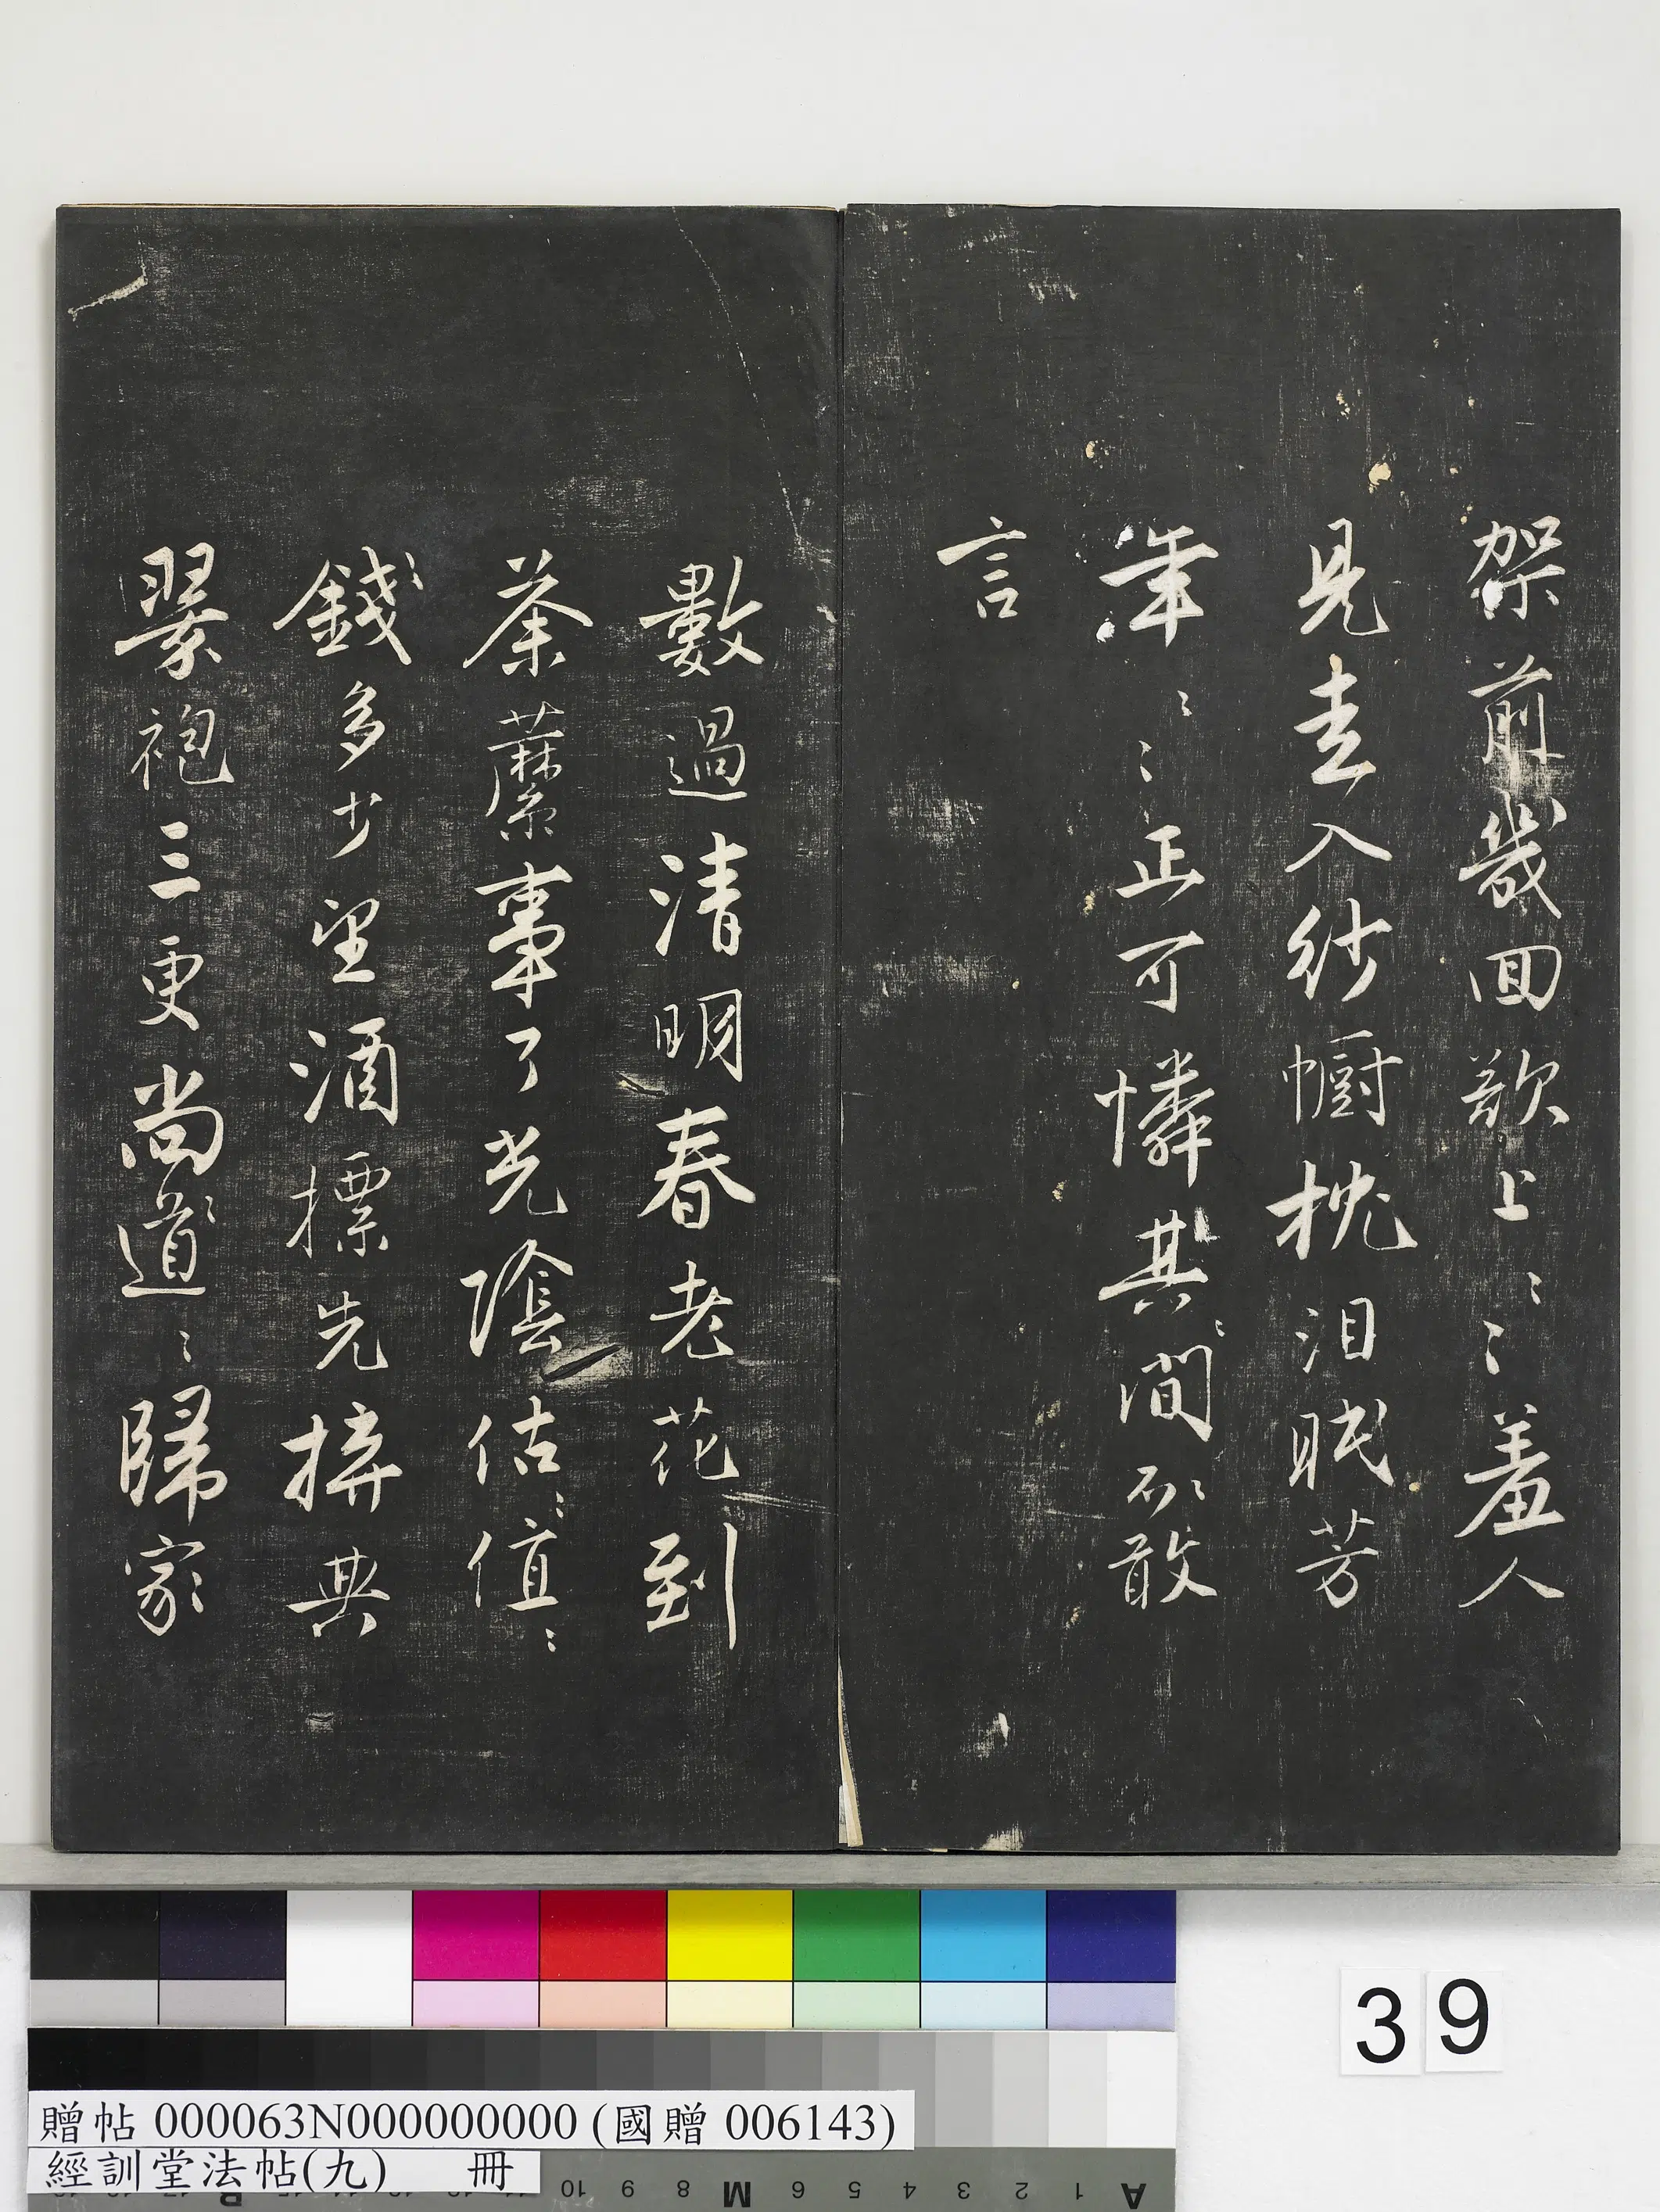 架前幾回欲上〻〻羞人
見走入紗幮枕泪眠芳
年〻〻正可憐其〻間〻不敢
言
數過清明春老花到
荼蘼事了光陰估〻值〻
錢多少望酒標先拚典
翠袍三更尚〻道〻歸家
39
贈帖 000063N000000000 (國贈 006143)
經訓堂法帖(九) 冊